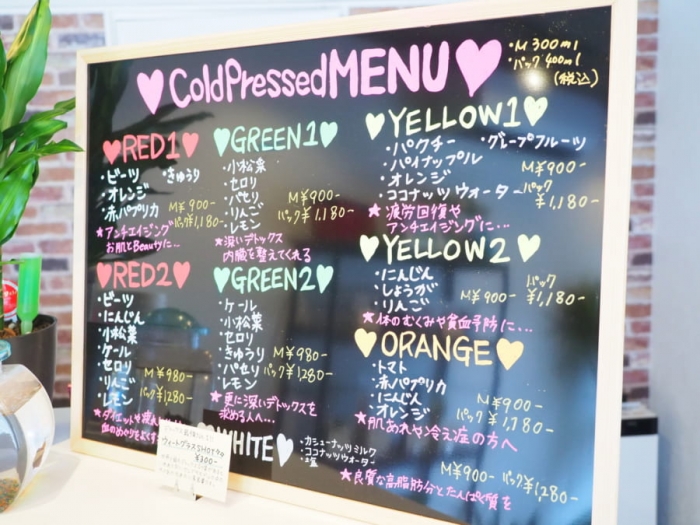 ♥ColdPressedMENU♥
・M 300ml
・パック 400ml
(税込)
♥RED1♥
・ビーツ ・きゅうり
・オレンジ
・赤パプリカ
M¥900-
パック¥1,180-
★アンチエイジング
お肌とBeautyに…
♥GREEN1♥
・小松菜
・セロリ
・パセリ
・りんご
・レモン
M¥900-
パック¥1,180-
★深いデトックス
内臓を整えてくれる
♥YELLOW1♥
・パクチー ・グレープフルーツ
・パイナップル
・オレンジ
・ココナッツウォーター
M¥900-
パック
¥1,180-
★疲労回復や
アンチエイジングに…
♥RED2♥
・ビーツ
・にんじん
・小松菜
・ケール
・セロリ
・りんご
・レモン
M¥980-
パック¥1280-
★ダイエットや
血のめぐりをよくす
♥GREEN2♥
・ケール
・小松菜
・セロリ
・きゅうり
・パセリ
・レモン
M¥980-
パック¥1280-
★更に深いデトックスを
求める人へ…
♥YELLOW2♥
・にんじん
・しょうが
・りんご
M¥900-
パック
¥1,180-
★体のむくみや貧血予防に…
♥ORANGE♥
・トマト
・赤パプリカ
・にんじん
・オレンジ
M¥900-
パック
¥1,180-
★肌あれや冷え症の方へ
WHITE♥
・カシューナッツミルク
・ココナッツウォーター
・塩
M¥900- パック¥1,280-
★良質な高脂肪分とたんぱく質を
ウィートグラスSHOT
¥300-